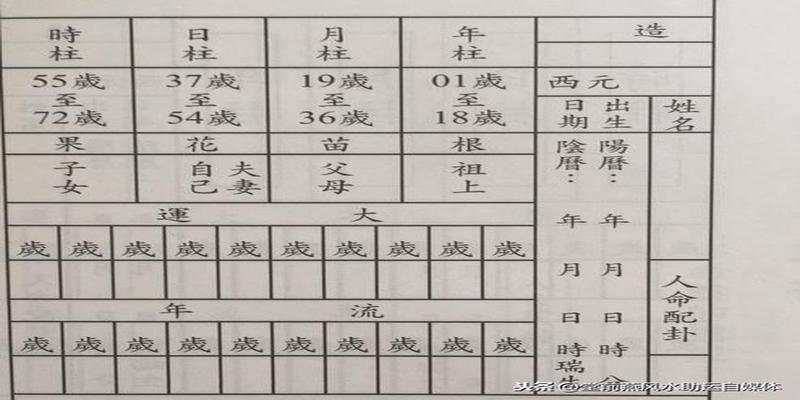 造
年柱 月柱 日柱 時柱
01歲至18歲 19歲至36歲 37歲至54歲 55歲至72歲
根 苗 花 果
祖上 父母 夫妻 自己 子女
西元
姓名
出生日期
陽曆：年 月 日 時
陰曆：年 月 日 時瑞生
人命配卦
大運
歲 歲 歲 歲 歲 歲 歲 歲 歲 歲
流年
歲 歲 歲 歲 歲 歲 歲 歲 歲 歲
头条 @
风水助运自媒体